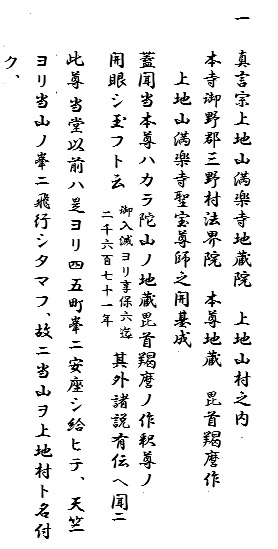 一 真言宗上地山満楽寺地蔵院 上地山村之内
本寺御野郡三野村法界院 本尊地蔵 毘首羯磨作
上地山満楽寺聖宝尊師之開基成
蓋聞当本尊ハカラ陀山ノ地蔵毘首羯磨ノ作釈尊ノ
開眼シ玉フト云 御入滅ヨリ享保六迄二千六百七十一年 其外諸説有伝へ聞ニ
此尊当堂以前ハ是ヨリ四五町峯ニ安座シ給ヒテ、天竺
ヨリ当山ノ峯ニ飛行シタマフ、故ニ当山ヲ上地村ト名付
ク、